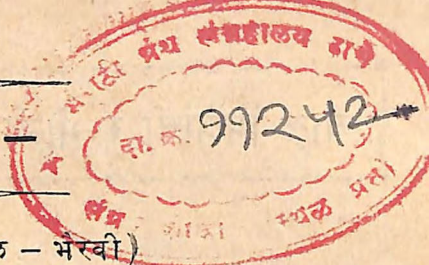 मराठी ग्रंथ संग्रहालय ठाणे
दा. क्र. ११२५२
स्थळ प्रत
– भैरवी)